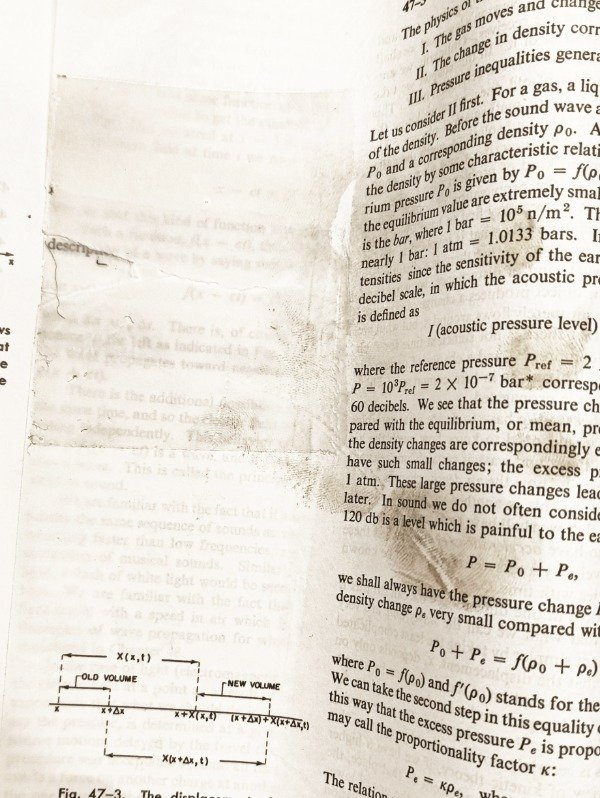 47-3
The physics of
I. The gas moves and change
II. The change in density corr
III. Pressure inequalities genera
Let us consider II first. For a gas, a liq
of the density. Before the sound wave a
P₀ and a corresponding density ρ₀. A
the density by some characteristic relati
rium pressure P₀ is given by P₀ = f(ρ₀
the equilibrium value are extremely smal
is the bar, where 1 bar = 10⁵ n/m². Th
nearly 1 bar: 1 atm = 1.0133 bars. I
tensities since the sensitivity of the ear
decibel scale, in which the acoustic pre
is defined as
I (acoustic pressure level)
where the reference pressure Pref = 2
P = 10³Pref = 2 × 10⁻⁷ bar* correspo
60 decibels. We see that the pressure ch
pared with the equilibrium, or mean, pre
the density changes are correspondingly e
have such small changes; the excess p
1 atm. These large pressure changes lead
later. In sound we do not often conside
120 db is a level which is painful to the ea
P = P₀ + Pₑ,
we shall always have the pressure change
density change ρₑ very small compared wit
P₀ + Pₑ = f(ρ₀ + ρₑ)
where P₀ = f(ρ₀) and f′(ρ₀) stands for the
We can take the second step in this equality
this way that the excess pressure Pₑ is propo
may call the proportionality factor κ:
Pₑ = κρₑ, whe
The relation
descrip
x
ws
at
e
e
X(x,t)
OLD VOLUME
NEW VOLUME
x
x+Δx
x+X(x,t)
(x+Δx)+X(x+Δx,t)
X(x+Δx, t)
Fig. 47–3. The displacem